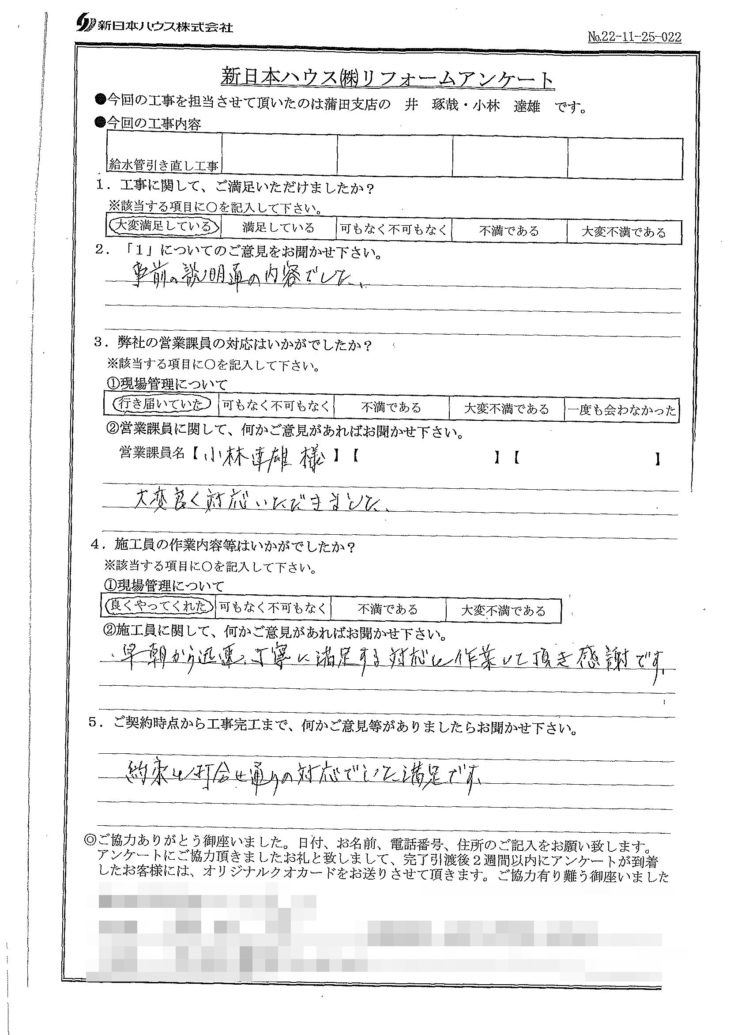 新日本ハウス株式会社
No.22-11-25-022
新日本ハウス㈱リフォームアンケート
●今回の工事を担当させて頂いたのは蒲田支店の 井 琢哉・小林 達雄 です。
●今回の工事内容
給水管引き直し工事
1．工事に関して、ご満足いただけましたか？
※該当する項目に○を記入して下さい。
大変満足している 満足している 可もなく不可もなく 不満である 大変不満である
2．「1」についてのご意見をお聞かせ下さい。
事前の説明通の内容でした、
3．弊社の営業課員の対応はいかがでしたか？
※該当する項目に○を記入して下さい。
①現場管理について
行き届いていた 可もなく不可もなく 不満である 大変不満である 一度も会わなかった
②営業課員に関して、何かご意見があればお聞かせ下さい。
営業課員名【小林達雄 様】【 】【 】
大変良く対応いただきました、
4．施工員の作業内容等はいかがでしたか？
※該当する項目に○を記入して下さい。
①現場管理について
良くやってくれた 可もなく不可もなく 不満である 大変不満である
②施工員に関して、何かご意見があればお聞かせ下さい。
早朝から迅速、丁寧に満足する対応と作業して頂き感謝です。
5．ご契約時点から工事完工まで、何かご意見等がありましたらお聞かせ下さい。
約束と打合せ通りの対応でした満足です。
◎ご協力ありがとう御座いました。日付、お名前、電話番号、住所のご記入をお願い致します。
アンケートにご協力頂きましたお礼と致しまして、完了引渡後2週間以内にアンケートが到着
したお客様には、オリジナルクオカードをお送りさせて頂きます。ご協力有り難う御座いました